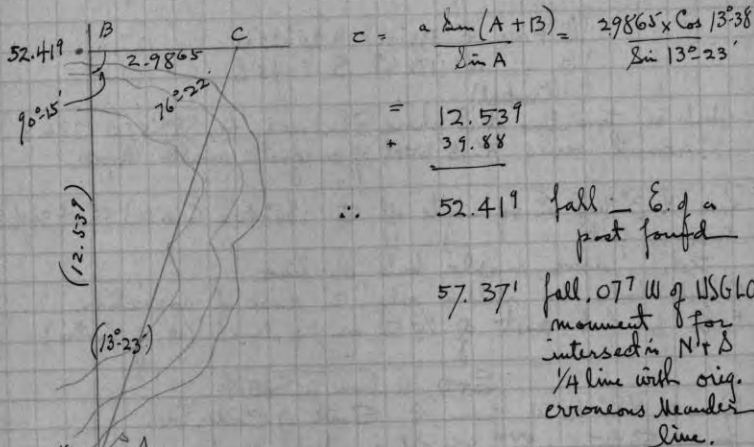 B C
52.419 2.9865
90°-15' 76°-22'
(12.539)
(13°-23')
A
c = a Sin (A + B) / Sin A = 29865 x Cos 13°-38' / Sin 13°-23'
= 12.539
+ 39.88
∴ 52.419 fall — E. of a
post found
57.371 fall .077 W of USGLO
monument for
intersectn N + S
1/4 line with orig.
erroneous Meander
line.